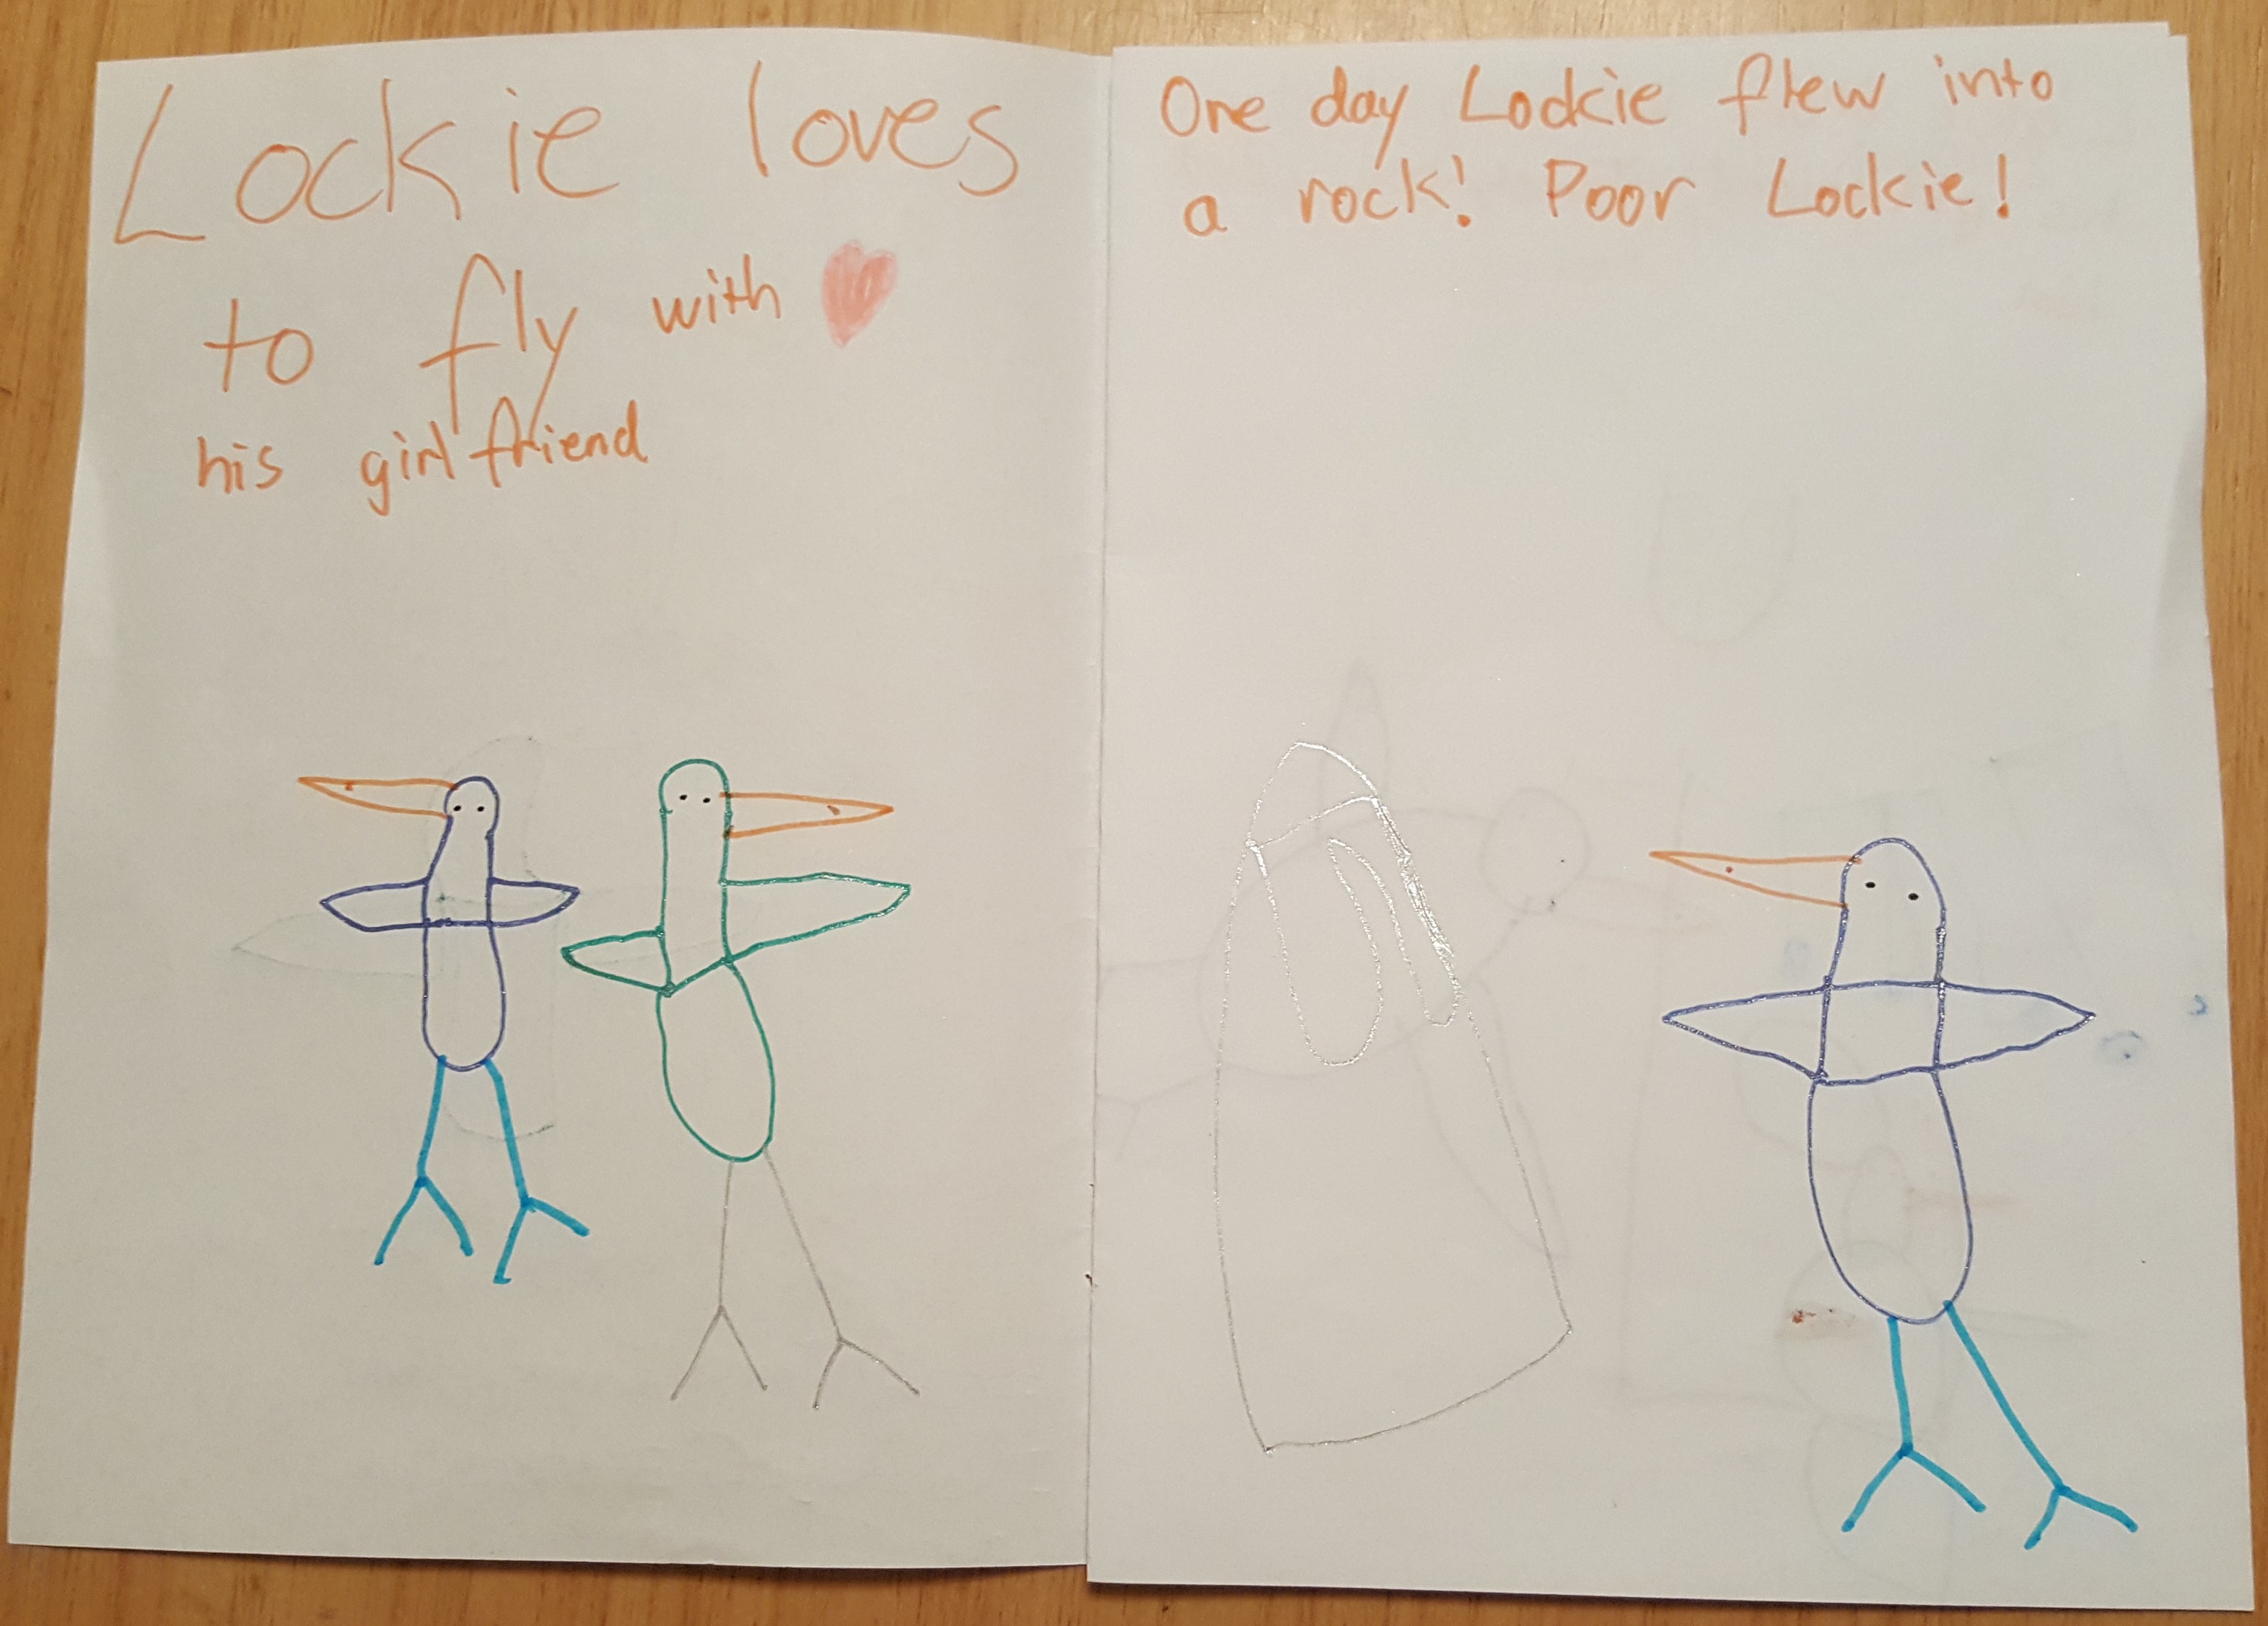 Lockie loves
to fly with
his girlfriend
One day Lockie flew into
a rock! Poor Lockie!